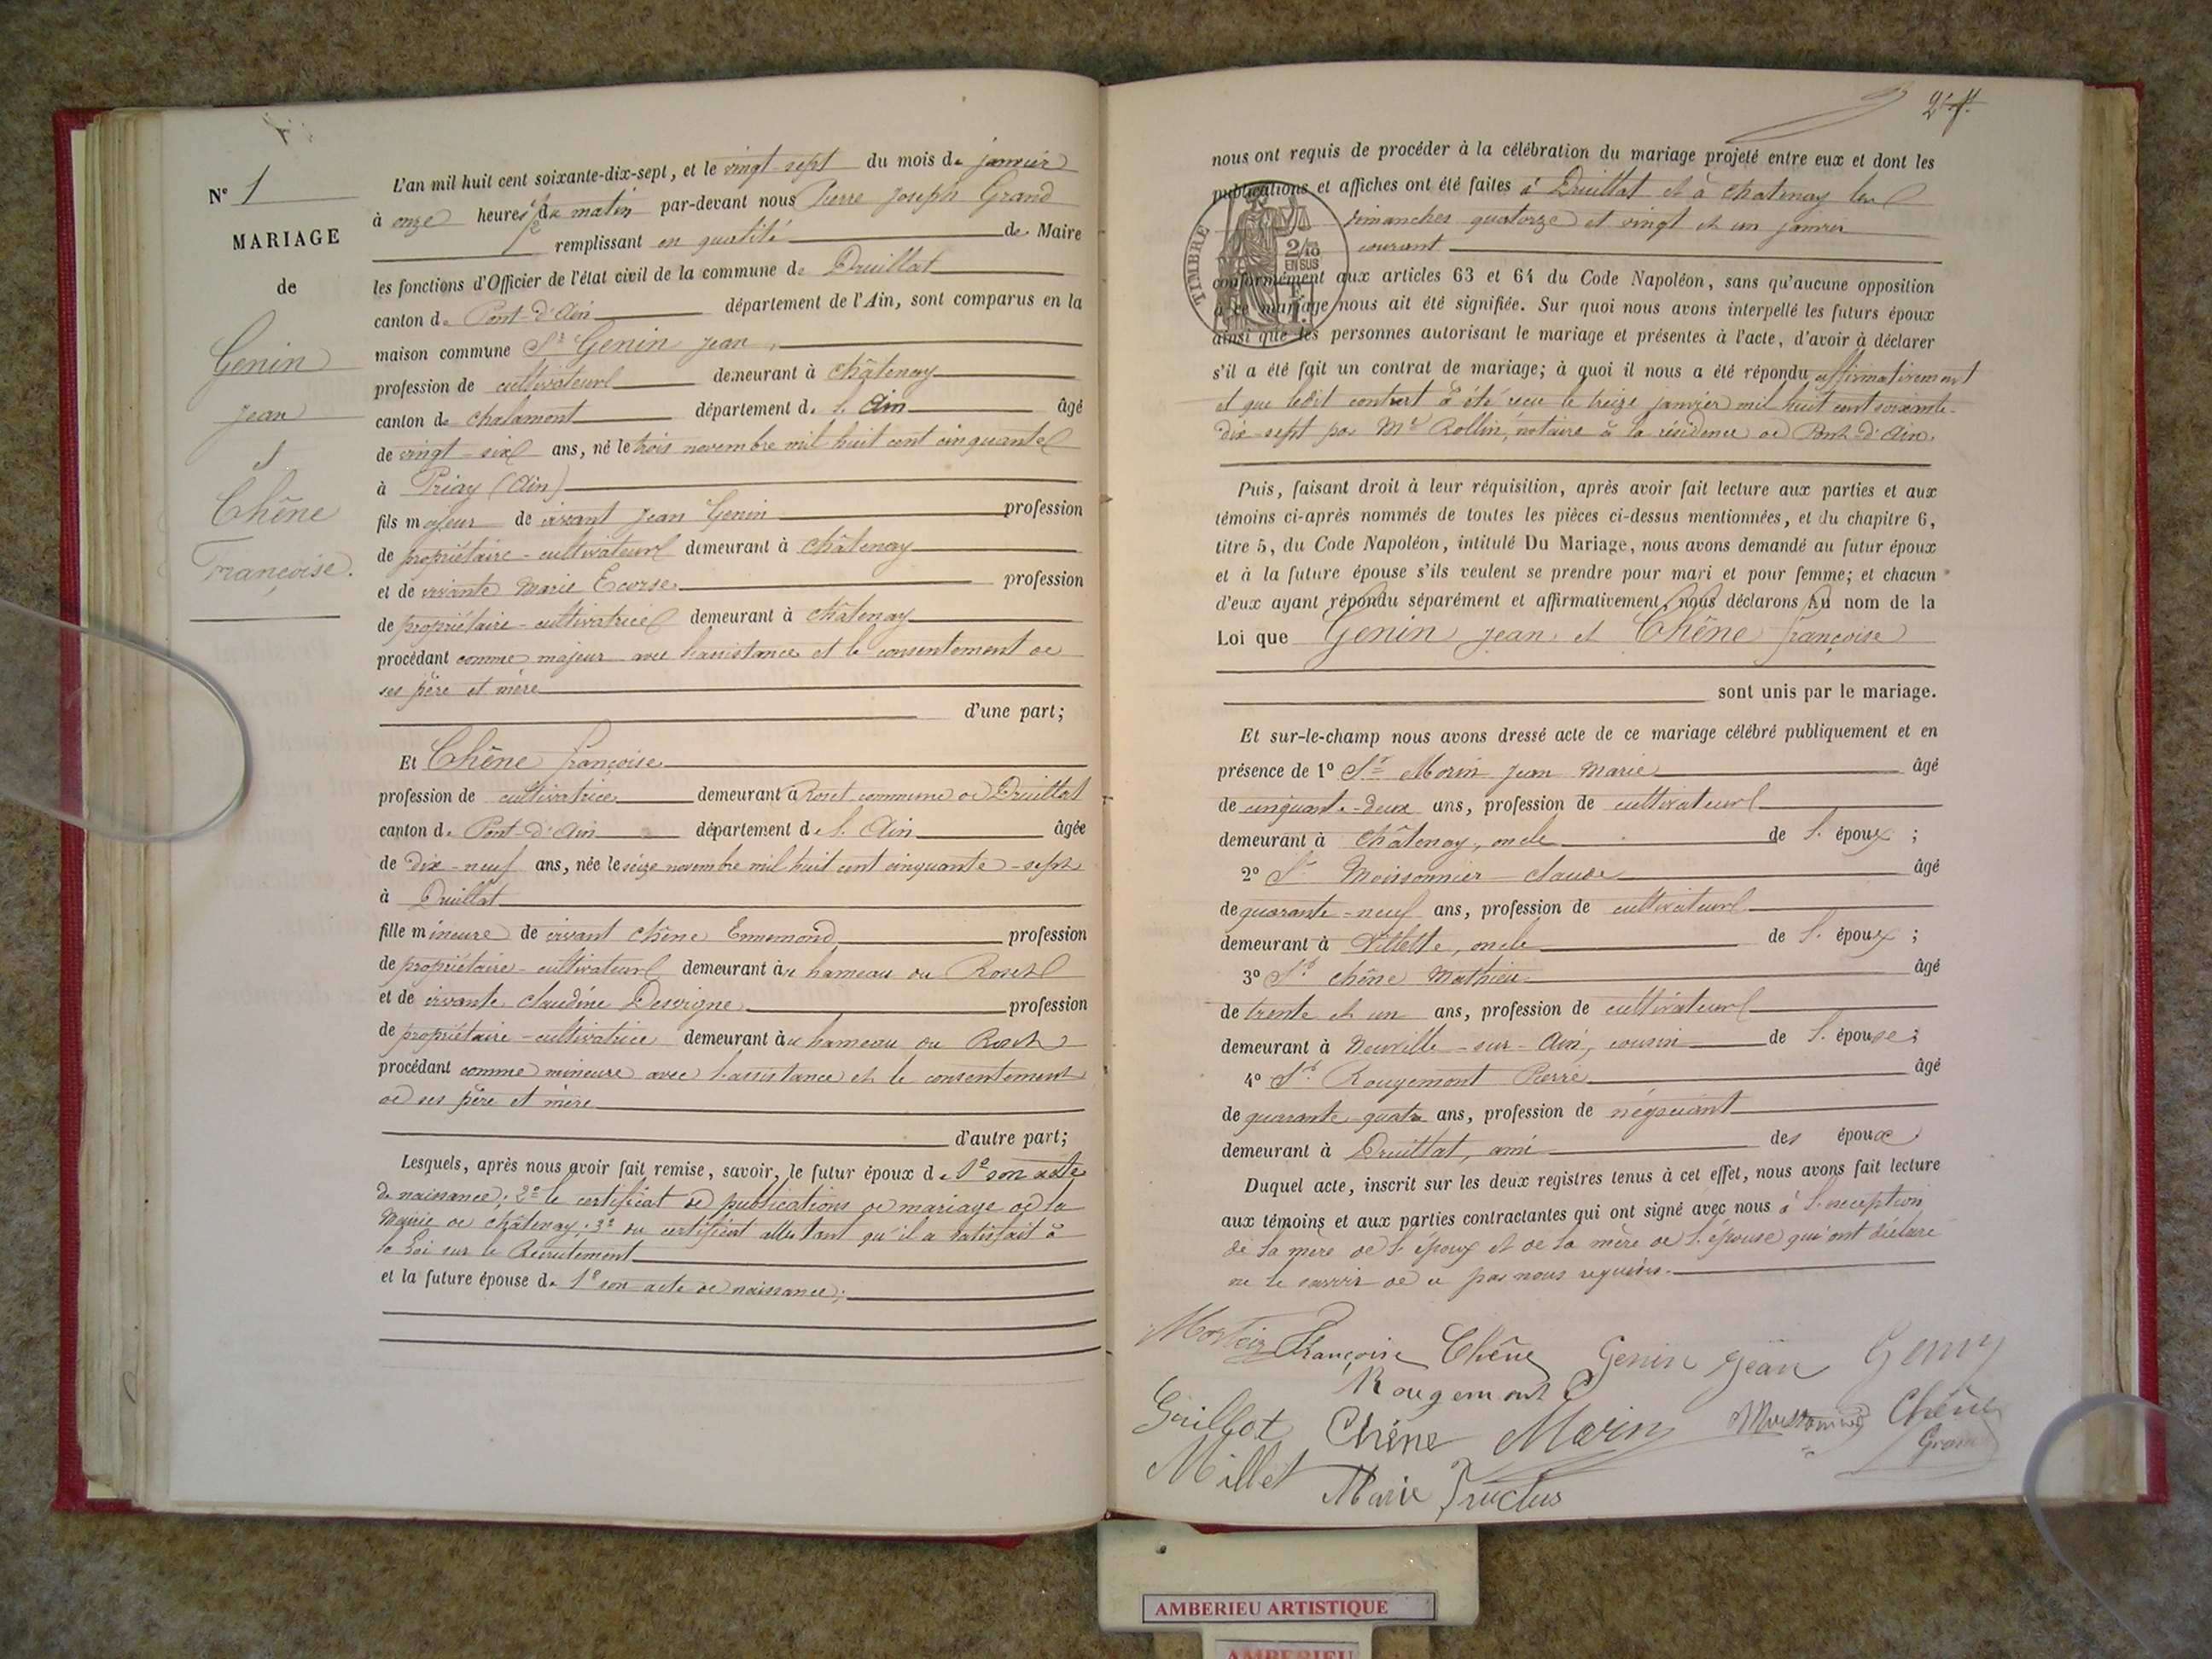 N° 1
MARIAGE
de
Genin
Jean
et
Chêne
Françoise.
L'an mil huit cent soixante-dix-sept, et le vingt-sept du mois de janvier
à onze heures du matin par-devant nous Pierre Joseph Grand
remplissant en qualité de Maire
les fonctions d'Officier de l'état civil de la commune de Druillat
canton de Pont-d'Ain département de l'Ain, sont comparus en la
maison commune Sr Genin Jean,
profession de cultivateur demeurant à Châtenay
canton de Chalamont département de l'Ain âgé
de vingt-six ans, né le trois novembre mil huit cent cinquante
à Priay (Ain)
fils majeur de vivant Jean Genin profession
de propriétaire-cultivateur demeurant à Châtenay
et de vivante Marie Ecorse profession
de propriétaire-cultivatrice demeurant à Châtenay
procédant comme majeur avec l'assistance et le consentement de
ses père et mère
d'une part;
Et Chêne Françoise
profession de cultivatrice demeurant à Roset commune de Druillat
canton de Pont-d'Ain département de l'Ain âgée
de dix-neuf ans, née le seize novembre mil huit cent cinquante-sept
à Druillat
fille mineure de vivant Chêne Ennemond profession
de propriétaire-cultivateur demeurant au hameau du Roset
et de vivante Claudine Desvigne profession
de propriétaire-cultivatrice demeurant au hameau du Roset
procédant comme mineure avec l'assistance et le consentement
de ses père et mère
d'autre part;
Lesquels, après nous avoir fait remise, savoir, le futur époux de 1° son acte
de naissance; 2° le certificat de publications de mariage de la
Mairie de Châtenay; 3° du certificat attestant qu'il a satisfait à
la loi sur le Recrutement
et la future épouse de 1° son acte de naissance;
2
nous ont requis de procéder à la célébration du mariage projeté entre eux et dont les
publications et affiches ont été faites à Druillat et à Chatenay les
dimanches quatorze et vingt et un janvier
courant
TIMBRE
2/10
EN SUS
conformément aux articles 63 et 64 du Code Napoléon, sans qu'aucune opposition
à ce mariage nous ait été signifiée. Sur quoi nous avons interpellé les futurs époux
ainsi que les personnes autorisant le mariage et présentes à l'acte, d'avoir à déclarer
s'il a été fait un contrat de mariage; à quoi il nous a été répondu affirmativement
et que ledit contrat a été reçu le treize janvier mil huit cent soixante-
dix-sept par Me Rollin, notaire à la résidence de Pont-d'Ain.
Puis, faisant droit à leur réquisition, après avoir fait lecture aux parties et aux
témoins ci-après nommés de toutes les pièces ci-dessus mentionnées, et du chapitre 6,
titre 5, du Code Napoléon, intitulé Du Mariage, nous avons demandé au futur époux
et à la future épouse s'ils veulent se prendre pour mari et pour femme; et chacun
d'eux ayant répondu séparément et affirmativement, nous déclarons Au nom de la
Loi que Genin Jean et Chêne Françoise
sont unis par le mariage.
Et sur-le-champ nous avons dressé acte de ce mariage célébré publiquement et en
présence de 1° Sr Morin Jean Marie âgé
de cinquante-deux ans, profession de cultivateur
demeurant à Châtenay, oncle de l'époux ;
2° Sr Moissonnier Claude âgé
de quarante-neuf ans, profession de cultivateur
demeurant à Villette, oncle de l'époux ;
3° Sr Chêne Mathieu âgé
de trente et un ans, profession de cultivateur
demeurant à Neuville-sur-Ain, cousin de l'épouse ;
4° Sr Rougemont Pierre âgé
de quarante quatre ans, profession de négociant
demeurant à Druillat, ami des époux
Duquel acte, inscrit sur les deux registres tenus à cet effet, nous avons fait lecture
aux témoins et aux parties contractantes qui ont signé avec nous à l'exception
de la mère de l'époux et de la mère de l'épouse qui ont déclaré
ne le savoir de ce par nous requises.
Françoise Chêne Genin Jean
Rougemont
Guillot Chêne Morin Moissonnier Chêne
Grand
Millet Marie Fructus
AMBERIEU ARTISTIQUE
AMBERIEU